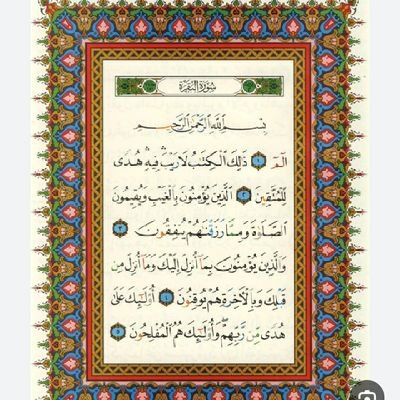 سُورَةُ الْبَقَرَةِ
بِسْمِ اللَّهِ الرَّحْمَٰنِ الرَّحِيمِ
الٓمٓ ۝١ ذَٰلِكَ الْكِتَابُ لَا رَيْبَ ۛ فِيهِ ۛ هُدًى
لِّلْمُتَّقِينَ ۝٢ الَّذِينَ يُؤْمِنُونَ بِالْغَيْبِ وَيُقِيمُونَ
الصَّلَاةَ وَمِمَّا رَزَقْنَاهُمْ يُنفِقُونَ ۝٣
وَالَّذِينَ يُؤْمِنُونَ بِمَا أُنزِلَ إِلَيْكَ وَمَا أُنزِلَ مِن
قَبْلِكَ وَبِالْآخِرَةِ هُمْ يُوقِنُونَ ۝٤ أُولَٰئِكَ عَلَىٰ
هُدًى مِّن رَّبِّهِمْ ۖ وَأُولَٰئِكَ هُمُ الْمُفْلِحُونَ ۝٥